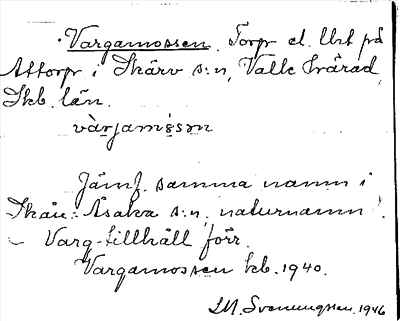 Vargamossen. Torp el. lht på
Attorp i Skärv s:n, Valle härad,
Skb. län.
värjamåsọn
Jämf. samma namn i
Skån.-Åsaka s:n, naturnamn.
- Varg-tillhåll förr.
Vargamossen kb. 1940.
I.M. Svenungsson. 1946